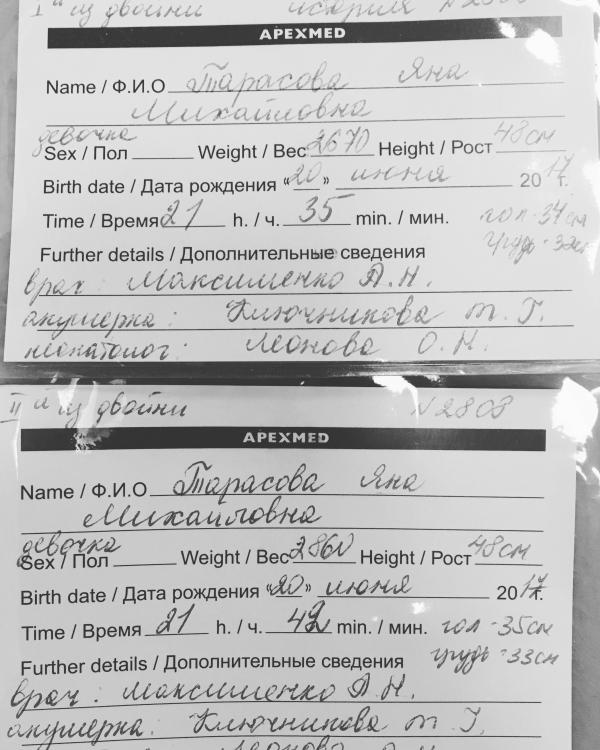 I ая из двойни история N 2803
APEXMED
Name / Ф.И.О Тарасова Яна
Михайловна
девочка
Sex / Пол Weight / Вес 2670 Height / Рост 48 см
Birth date / Дата рождения «20» июня 2017 г.
Time / Время 21 h. / ч. 35 min. / мин. гол - 34 см
грудь - 32 см
Further details / Дополнительные сведения
врач: Максименко А.Н.
акушерка: Ключникова т. Г.
неонатолог: Леонова О. Н.
II ая из двойни N 2803
APEXMED
Name / Ф.И.О Тарасова Яна
Михайловна
девочка
Sex / Пол Weight / Вес 2860 Height / Рост 48 см
Birth date / Дата рождения «20» июня 2017 г.
Time / Время 21 h. / ч. 42 min. / мин. гол - 35 см
Further details / Дополнительные сведения грудь - 33 см
врач: Максименко А.Н.
акушерка: Ключникова т. Г.
Леонова